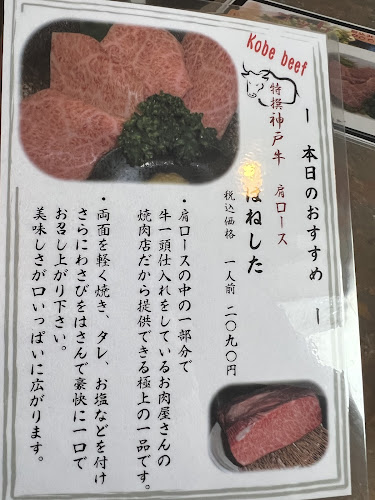 Kobe beef
ー 本日のおすすめ ー
特撰神戸牛 肩ロース
はねした
税込価格 一人前 二〇九〇円
・肩ロースの中の一部分で
牛一頭仕入れをしているお肉屋さんの
焼肉店だから提供できる極上の一品です。
・両面を軽く焼き、タレ、お塩などを付け
さらにわさびをはさんで豪快に一口で
お召し上がり下さい。
美味しさが口いっぱいに広がります。